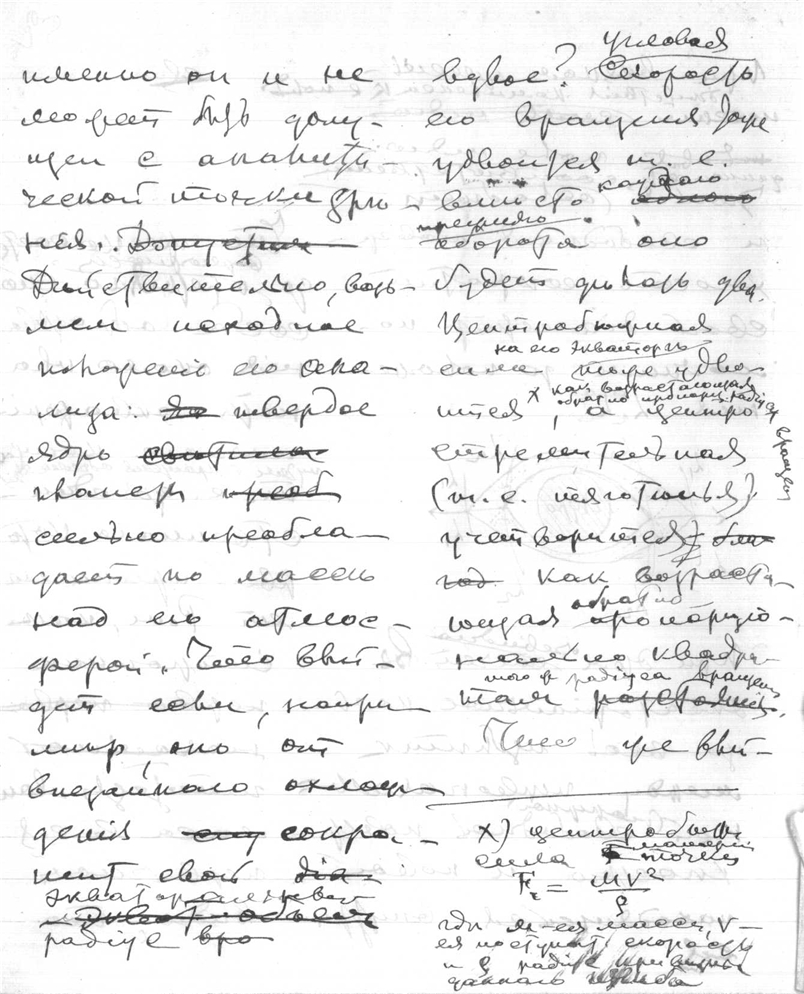 именно он и не
можетъ быть допу-
щен с аналити-
ческой точки зрѣ-
нія. Допустим
Дѣйствительно, возь-
мем исходное
положеніе его ана-
лиза: твердое
ядро свѣтила
планеты преоб
сильно преобла-
даетъ по массѣ
над его атмос-
ферой. Что вый-
детъ если, напри-
мѣр, оно от
внезапного охлаж-
денія сокра-
тит свой діа-
экваторіальный
радіус вдво
вдвое? Скорость
угловая
его вращенія тоже
удвоится т. е.
вмѣсто каждаго одного
прежняго
оборота оно
будетъ дѣлать два.
Центробѣжная
на его экваторѣ
сила тоже удво-
ится х как возрастающая
обратно пропорц. радіусу
вращен
, а центро
стремительная
(т. е. тяготѣнья)
учетверится,
как возраста-
ющая обратно пропорціо-
нально квадра-
тному радіуса вращен
там разстоянія.
Что же вый-
х) центробѣжн
сила матеріал
точки
F = MV²/ρ
гдѣ м-ея масса, V-
ея поступат. скорость
и ρ радіус кривизны